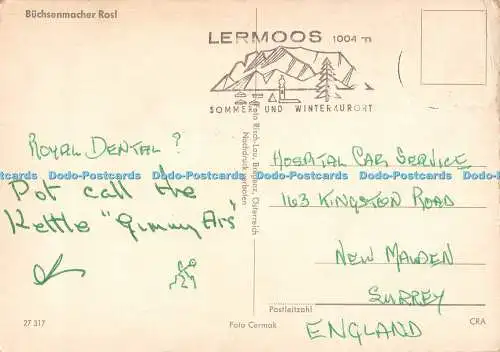 Büchsenmacher Rosl
LERMOOS 1004 m
SOMMER UND WINTERKURORT
ROYAL DENTAL ?
Pot call the
Kettle "Gummy Ars"
HOSPITAL CAR SERVICE
163 KINGSTON ROAD
NEW MALDEN
SURREY
ENGLAND
Foto Risch-Lau, Bregenz, Österreich
Nachdruck verboten
Postleitzahl
27 317
Foto Cermak
CRA
Dodo-Postcards Dodo-Postcards Dodo-Postcards Dodo-Postcards